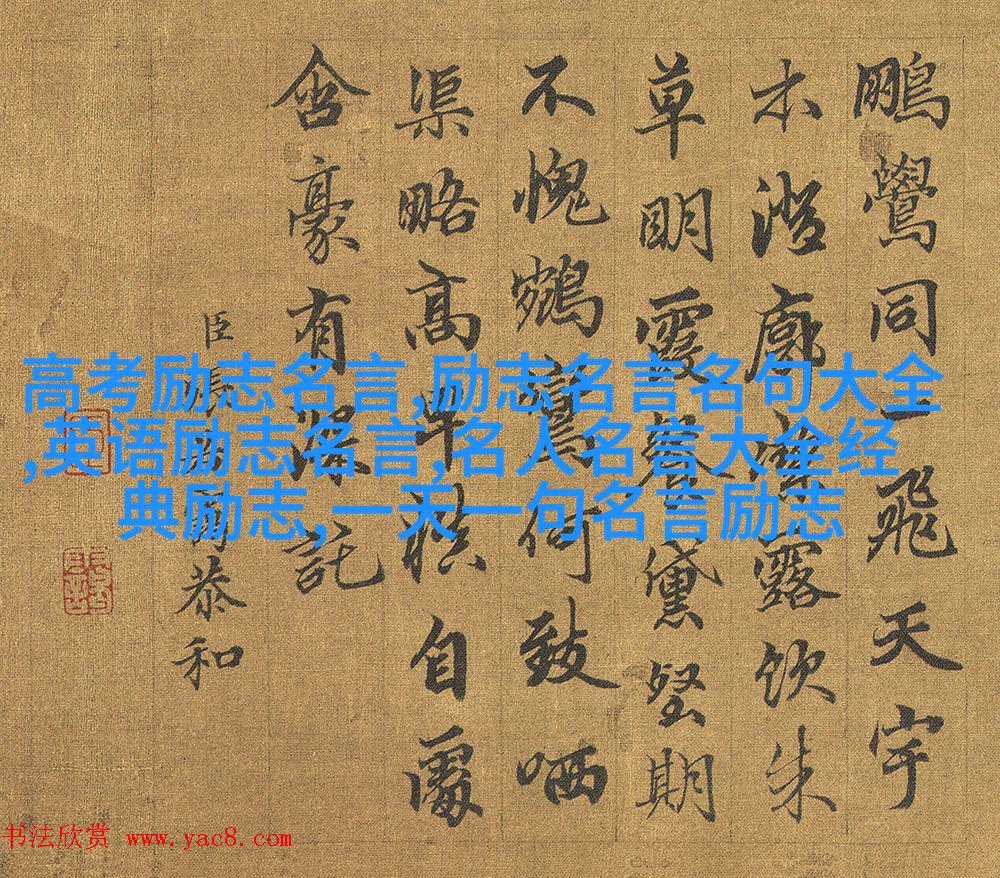 鵬鷽同一飛天宇
木澄廓露飲朱
草明霞餐黛堅期
不愧鵷鸞何致哂
渠略高卑自
含豪有深託
臣張恭和
高考励志名言,励志名言名句大全
,英语励志名言,名人名言大全经
典励志,一天一句名言励志
书法欣赏 www.yac8.com